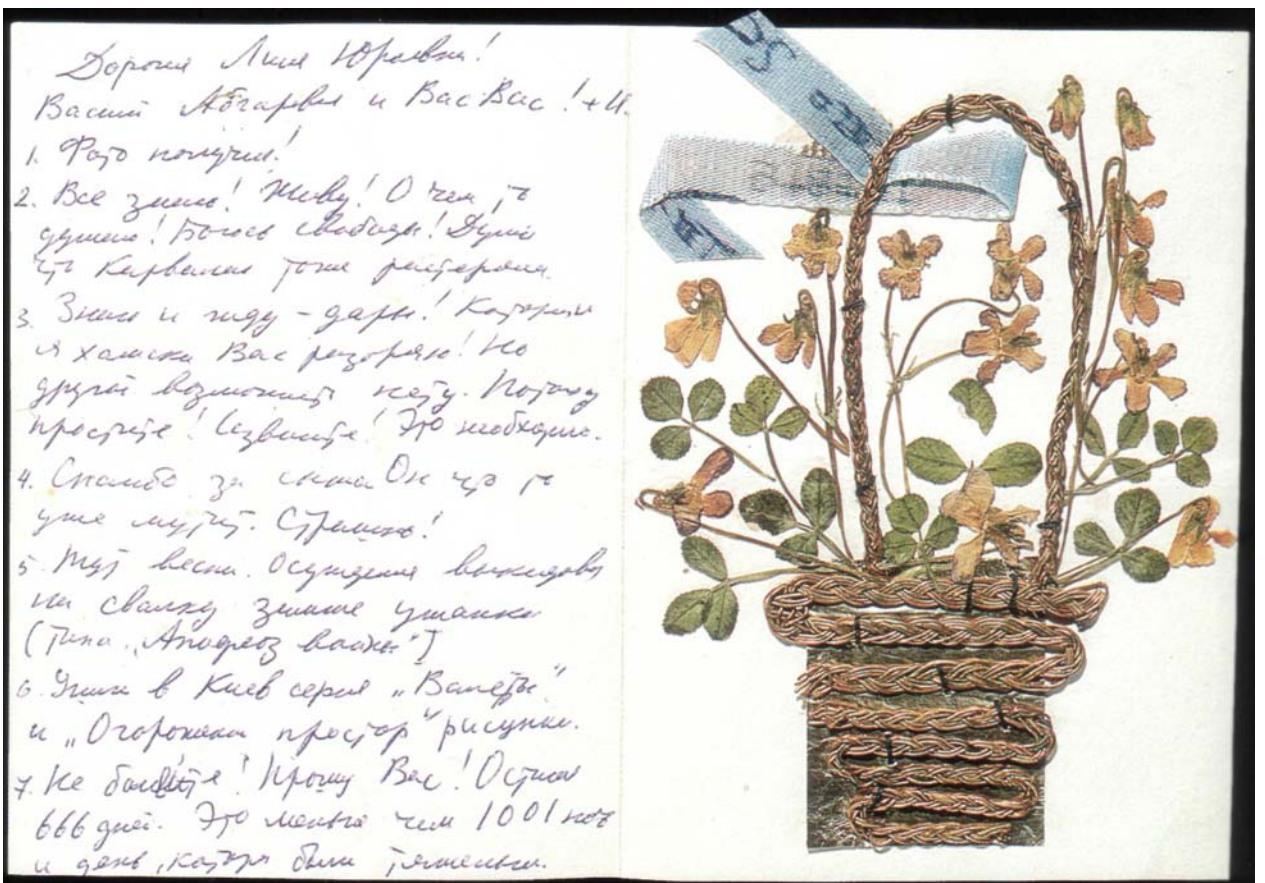 Дорогие Лиля Юрьевна!
Василий Абгарович и Вас. Вас.! + И.
1. Фото получил!
2. Все знаю! Живу! О чем то
думаю! Боюсь свободы! Думаю
что Карвалан тоже растерян.
3. Знаю и жду – дары! Которыми
я хамски Вас разоряю! Но
другой возможности нету. Потому
простите! Извините! Это необходимо.
4. Спасибо за сына Он что то
уже мутит. Страшно!
5. Тут весна. Осужденные
на свалку зимние ушанки
(Типа „Апофеоз войны")
6. Ушли в Киев серия „Валеты"
и „Огорожен простор" рисунки.
7. Не болейте! Прошу Вас! Осталось
666 дней. Это меньше чем 1001 ночь
и день, которые были тяжелыми.